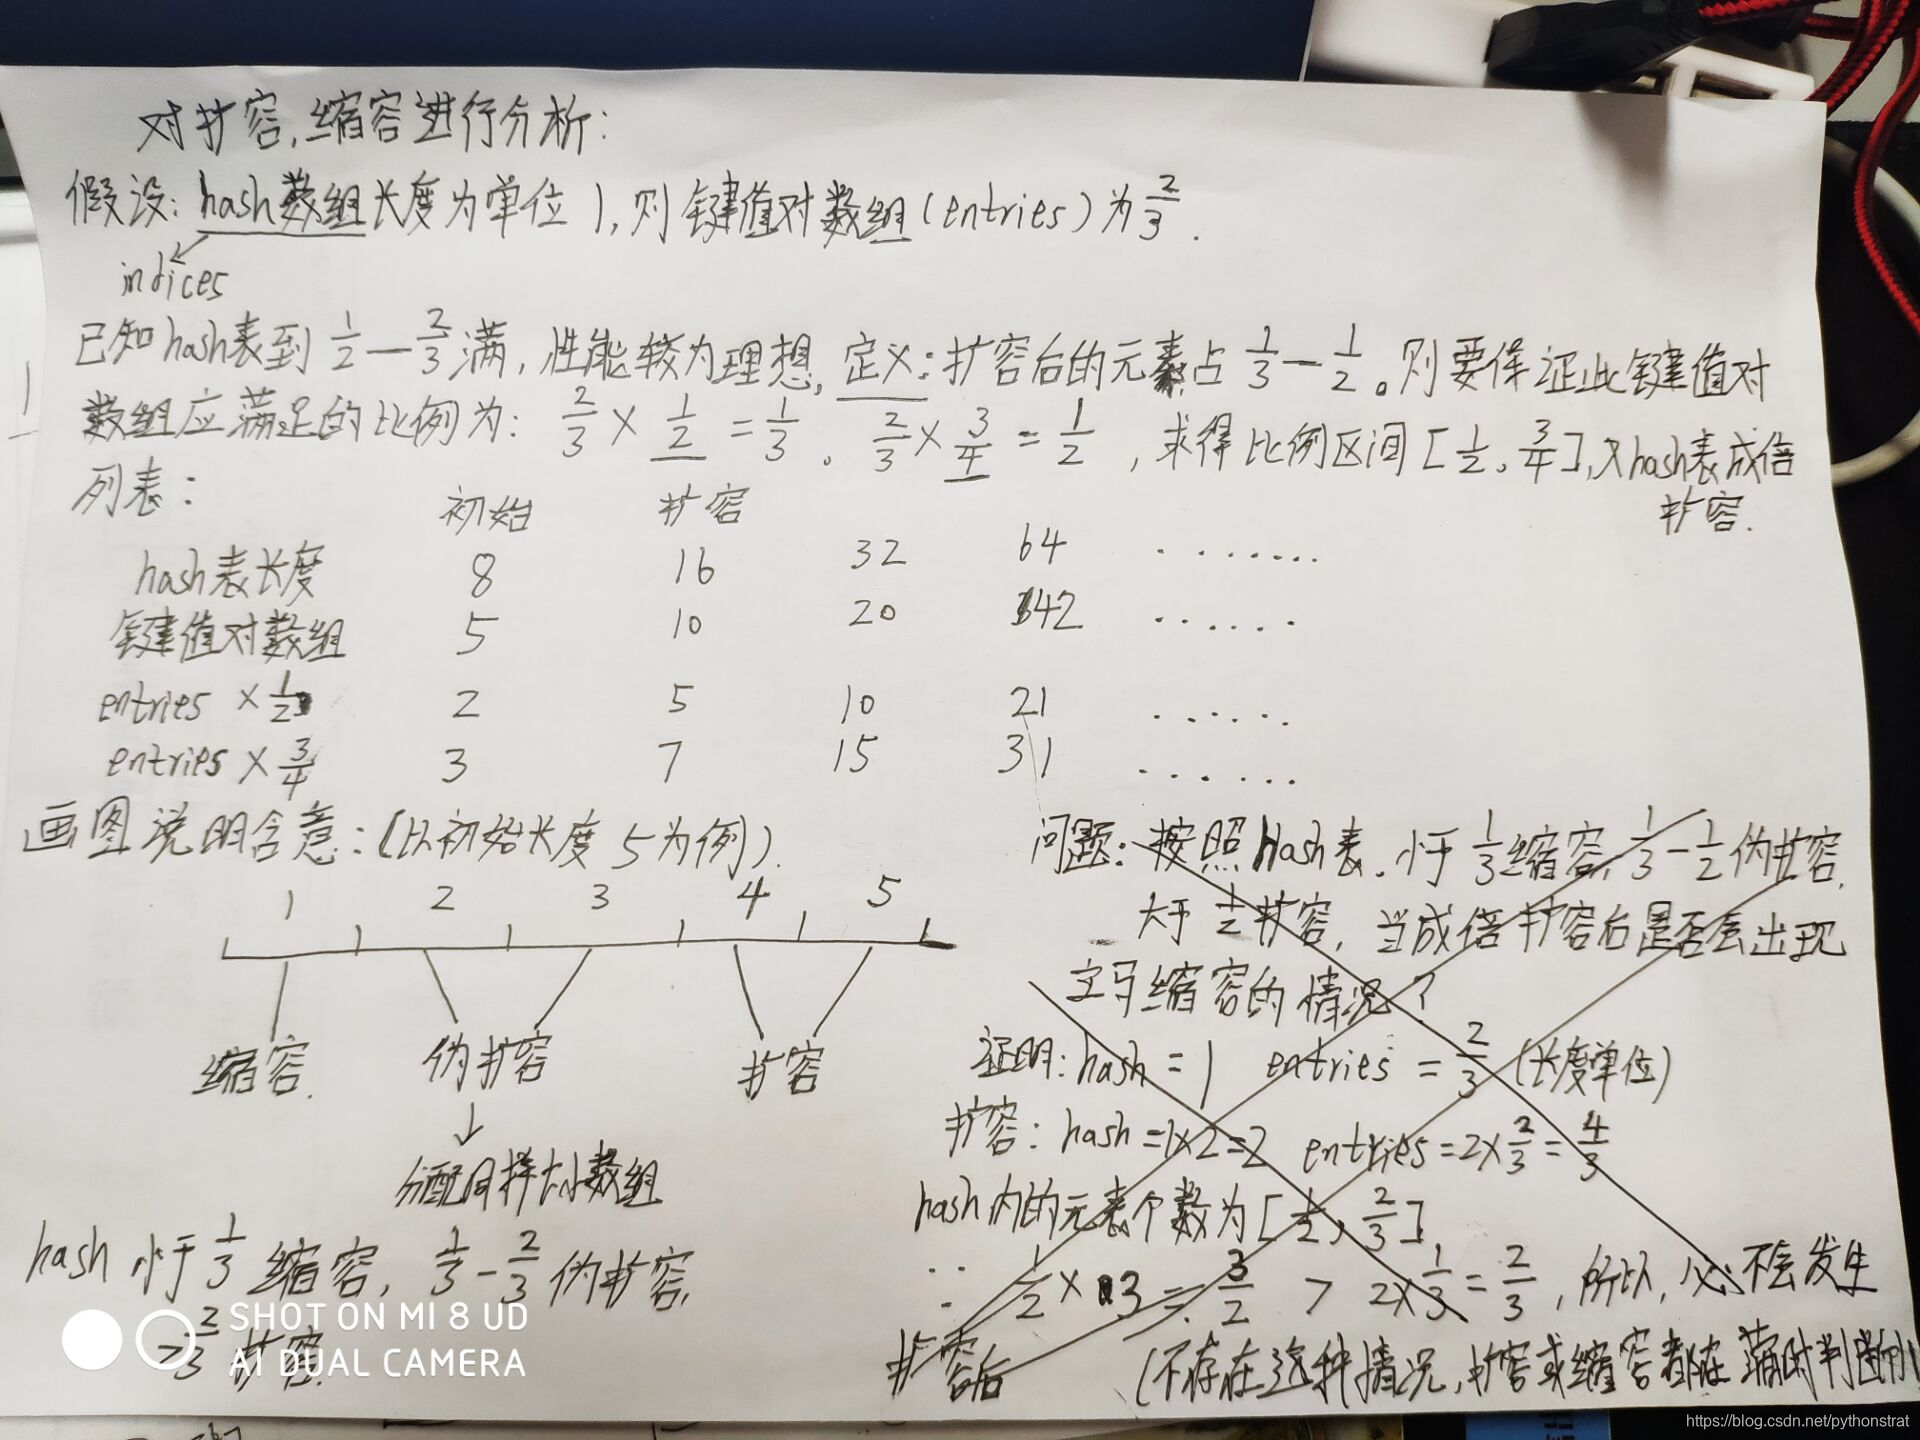 对扩容,缩容进行分析:
假设: hash数组长度为单位 1, 则 键值对数组(entries)为 2/3.
indices
已知hash表到 1/2 — 2/3 满, 性能较为理想, 定义: 扩容后的元素占 1/3 — 1/2。则要保证此键值对
数组应满足的比例为: 2/3 × 1/2 = 1/3 。 2/3 × 3/4 = 1/2 , 求得比例区间 [1/2, 3/4], 又hash表成倍
扩容.
列表:
初始 扩容
hash表长度 8 16 32 64 ........
键值对数组 5 10 20 42 ......
entries × 1/2 2 5 10 21 ......
entries × 3/4 3 7 15 31 .......
画图说明含意: (以初始长度 5为例).
1 2 3 4 5
缩容. 伪扩容 扩容
分配同样大小数组
hash 小于 1/3 缩容, 1/3 - 2/3 伪扩容,
>2/3 扩容.
问题: 按照hash表. 小于 1/3 缩容, 1/3 - 1/2 伪扩容.
大于 1/2 扩容, 当成倍扩容后是否会出现
立马缩容的情况?
证明: hash = 1 entries = 2/3 (长度单位)
扩容: hash = 1×2=2 entries = 2× 2/3 = 4/3
hash内的元素个数为 [1/2, 2/3]
∴ 1/2 × 3 = 3/2 > 2× 1/3 = 2/3 , 所以, 必不会发生
扩容后 (不存在这种情况, 扩容或缩容都在满时判断
SHOT ON MI 8 UD
AI DUAL CAMERA
https://blog.csdn.net/pythonstrat